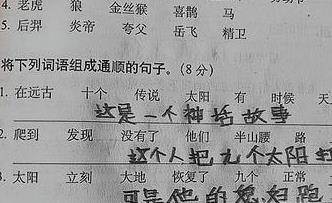 4. 老虎 狼 金丝猴 喜鹊 马
5. 后羿 炎帝 夸父 岳飞 精卫
将下列词语组成通顺的句子。(8分)
1. 在远古 十个 传说 太阳 有 时候 天
这是一个神话故事
2. 爬到 发现 没有了 他们 半山腰 路
这个人把九个太阳
3. 太阳 立刻 大地 恢复了 九个 正常
可是他的